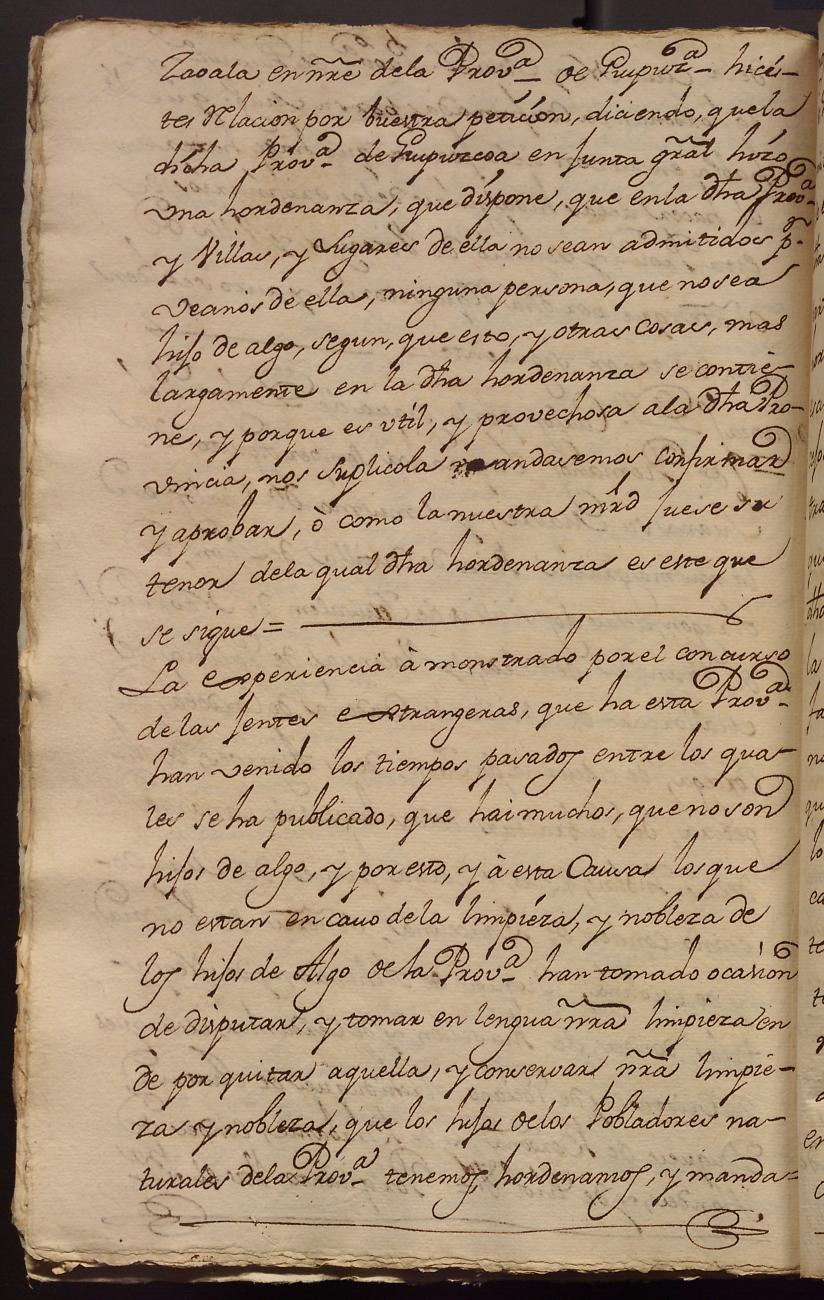 Zavala en nr̃e dela Prov.ª de Guipuz.ª hicis-
tes Relacion por buestra peticion, diciendo, quela
dicha Prov.ª de Guipuzcoa en Junta gr̃al hizo
vna hordenanza, que dispone, que enla dh̃a Prov.ª
y Villas, y Lugares de ella no sean admitidos p.r
vecinos de ella, ninguna persona, que no sea
hijo de algo, segun, que esto, y otras cosas, mas
largamente en la dh̃a hordenanza se contie-
ne, y porque es vtil, y provechosa ala dh̃a Pro-
vincia, nos suplicola mandasemos confirmar
y aprobar, ò como la nuestra mr̃d fuese su
tenor dela qual dh̃a hordenanza es este que
se sigue =
La experiencia à monstrado por el concurso
de las Jentes extrangeras, que ha esta Prov.ª
han venido los tiempos pasados entre los qua-
les se ha publicado, que hai muchos, que no son
hijos de algo, y por esto, y à esta Causa los que
no estan en cauo de la limpieza, y nobleza de
los hijos de Algo de la Prov.ª han tomado ocasion
de disputar, y tomar en lengua nr̃a limpieza en
de por quitar aquella, y conservar nr̃a limpie-
za y nobleza, que los hijos de los Pobladores na-
turales dela Prov.ª tenemos, hordenamos, y manda-